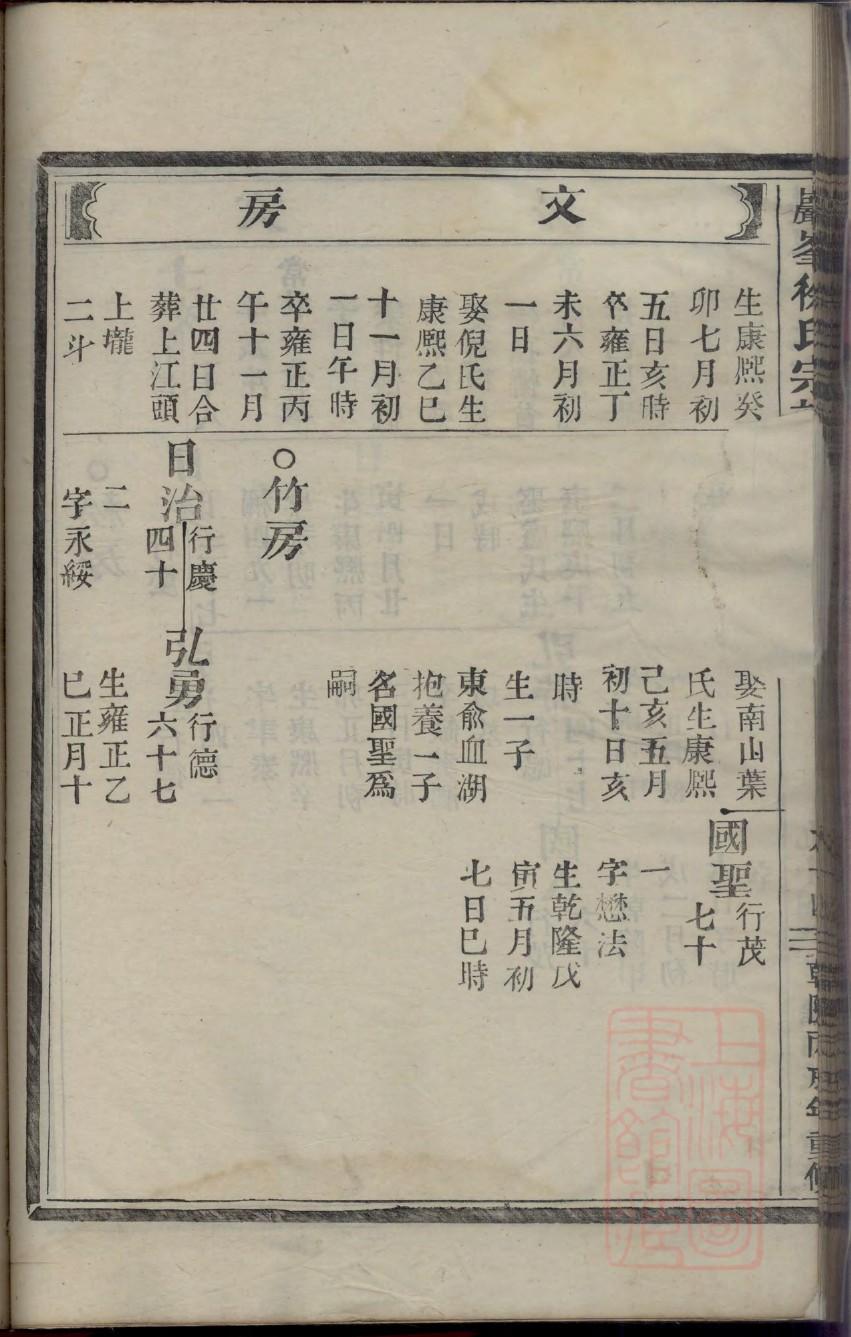 文房
生康熈癸
卯七月初
五日亥時
卒雍正丁
未六月初
一日
娶倪氏生
康熈乙巳
十一月初
一日午時
卒雍正丙
午十一月
廿四日合
葬上江頭
上壠
二斗
○竹房
日治
行慶
四十
二
字永綏
娶南山葉
氏生康熈
己亥五月
初十日亥
時
生一子
東俞血湖
抱養一子
名國聖爲
嗣
弘勇
行德
六十七
生雍正乙
巳正月十
國聖
行茂
七十
一
字懋法
生乾隆戊
寅五月初
七日巳時
上海圖
書館藏